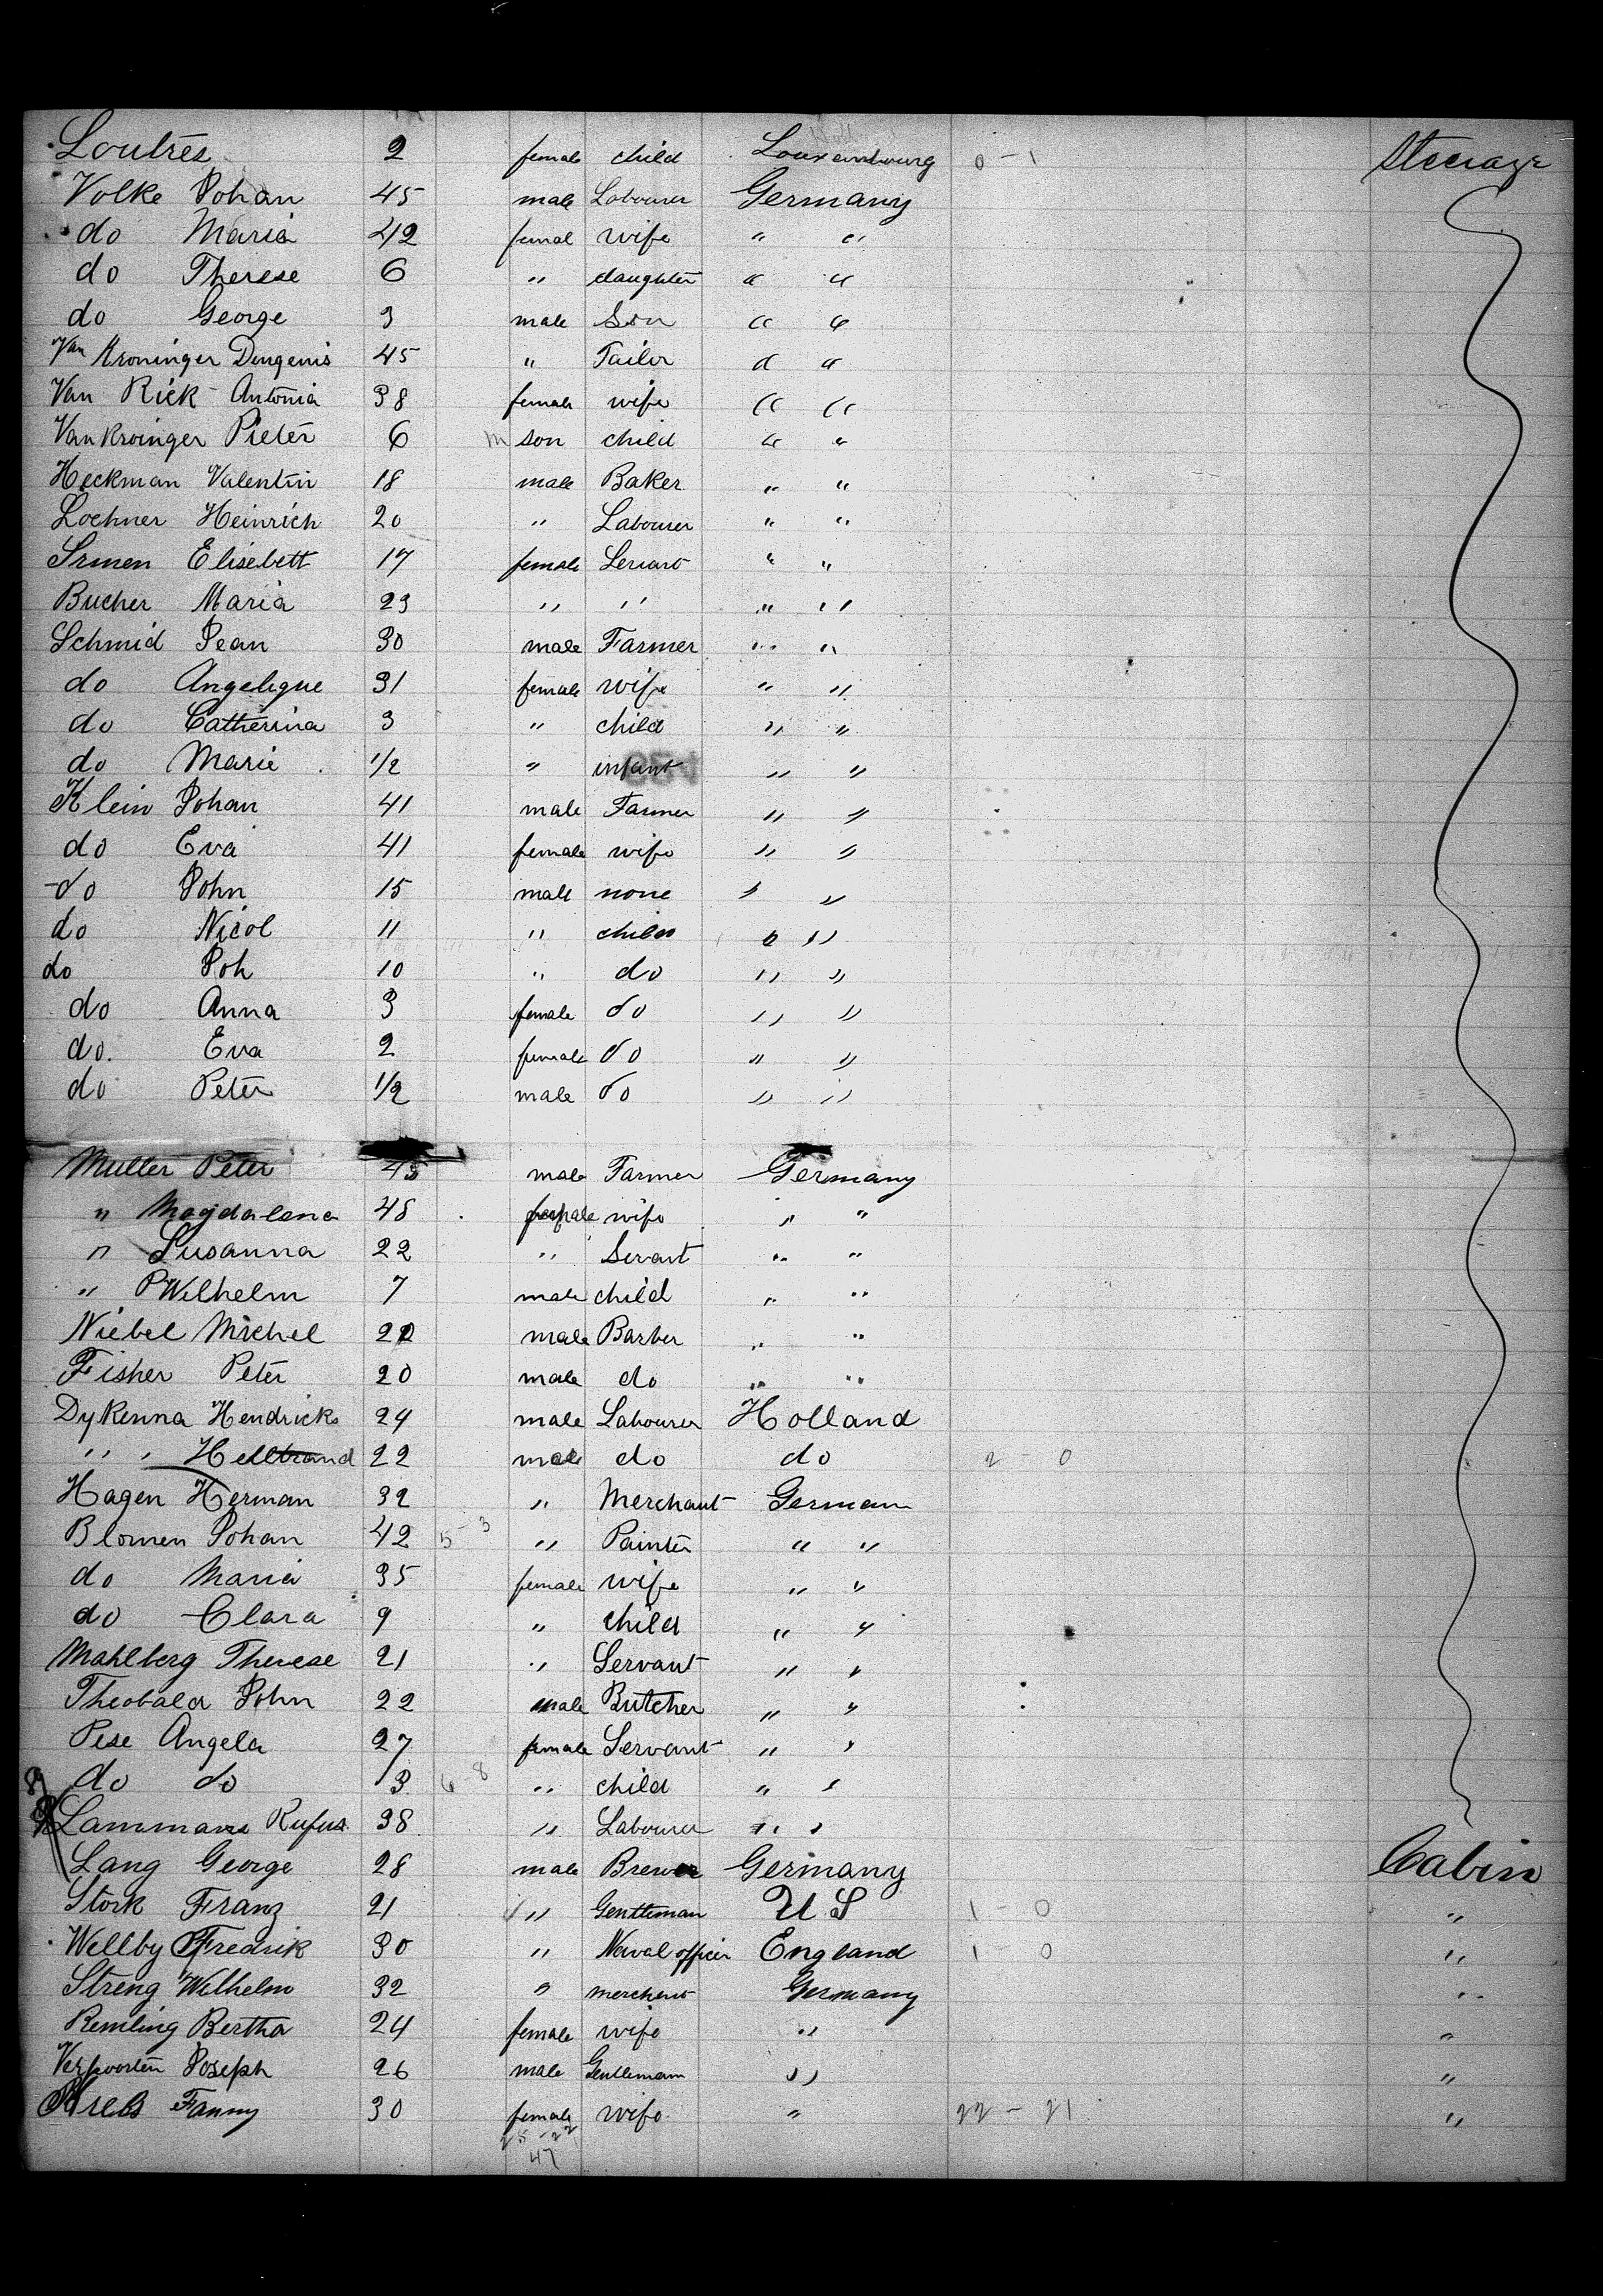 Loutres 2 female child Louxembourg 0 - 1 Steerage
Volke Johan 45 male Labourer Germany
do Maria 42 femal wife " "
do Therese 6 " daughter " "
do George 3 male Son " "
Van Kroninger Dingenis 45 " Tailor " "
Van Rick Antonia 38 female wife " "
Van Kroinger Pieter 6 m son child " "
Heckman Valentin 18 male Baker " "
Lochner Heinrich 20 " Labourer " "
Irmen Elisebett 17 female Servant " "
Bucher Maria 23 " " " "
Schmid Jean 30 male Farmer " "
do Angelique 31 female wife " "
do Catherina 3 " child " "
do Marie 1/2 " infant " "
Klein Johan 41 male Farmer " "
do Eva 41 female wife " "
do John 15 male none " "
do Nicol 11 " child " "
do Joh 10 " do " "
do Anna 3 female do " "
do. Eva 2 female do " "
do Peter 1/2 male do " "
Muller Peter 45 male Farmer Germany
" Magdalena 48 female wife " "
" Susanna 22 " Servant " "
" P Wilhelm 7 male child " "
Niebel Michel 22 male Barber " "
Fisher Peter 20 male do " "
Dykenna Hendricks 24 male Labourer Holland
" " 22 male do do 2 - 0
Hagen Herman 32 " Merchant German
Blomen Johan 42 5 - 3 " Painter " "
do Maria 35 female wife " "
do Clara 9 " child " "
Mahlberg Therese 21 " Servant " "
Theobald John 22 male Butcher " "
Pese Angela 27 female Servant " "
do do 3 6 8 " child " "
Lammans Rufus 38 " Labourer " "
Lang George 28 male Brewer Germany Cabin
Stork Franz 21 " Gentleman U S 1 - 0 "
Wellby Fredrik 30 " Naval officer England 1 - 0 "
Streng Wilhelm 32 " merchant Germany "
Remling Bertha 24 female wife " "
Verpoorten Joseph 26 male Gentlemam " "
Krebs Fanny 30 female wife " 22 - 21 "
25 - 22
47